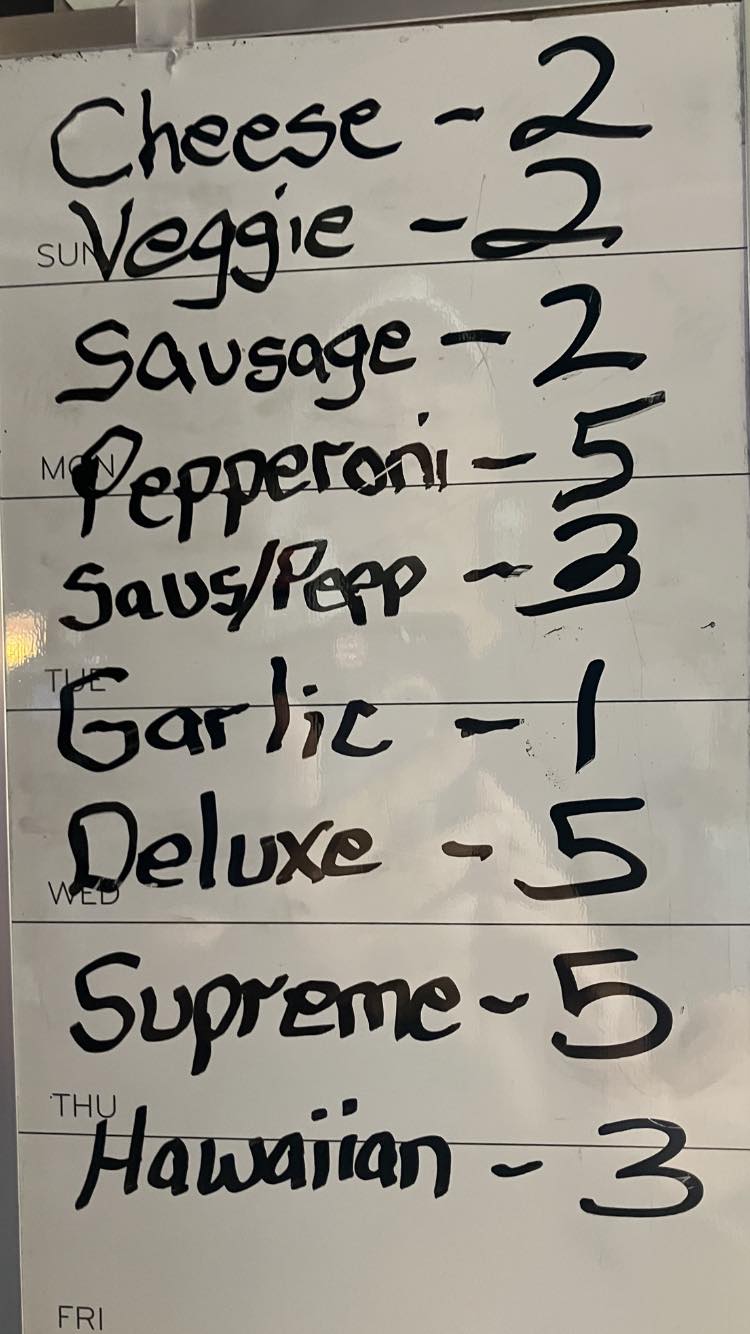 Cheese - 2
Veggie - 2
SUN
Sausage - 2
Pepperoni - 5
MON
Saus/Pepp - 3
TUE
Garlic - 1
Deluxe - 5
WED
Supreme - 5
THU
Hawaiian - 3
FRI